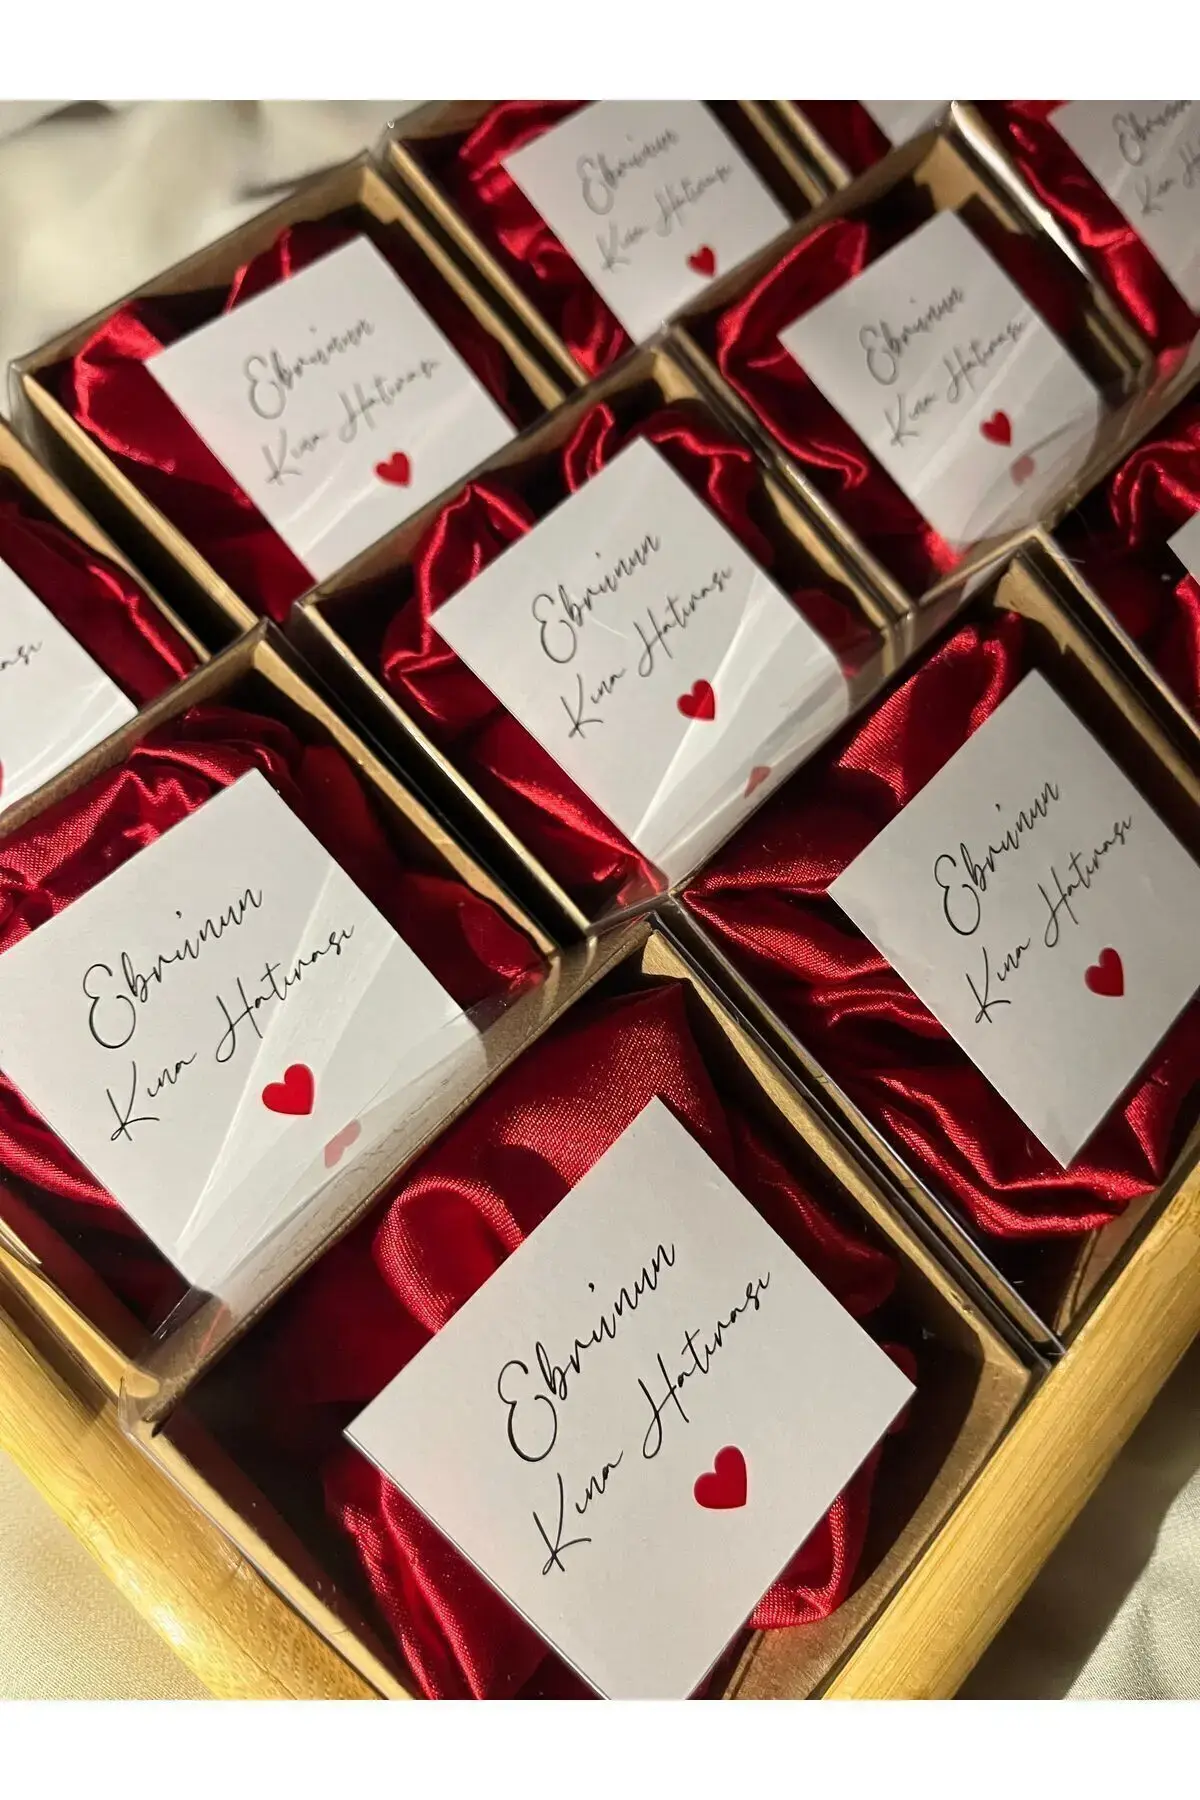 Ebru'nun
Kına Hatırası
Ebru'nun
Kına Hatırası
Ebru'nun
Kına Hatırası
Ebru'nun
Kına Hatırası
Ebru'nun
Kına Hatırası
Ebru'nun
Kına Hatırası
Ebru'nun
Kına Hatırası